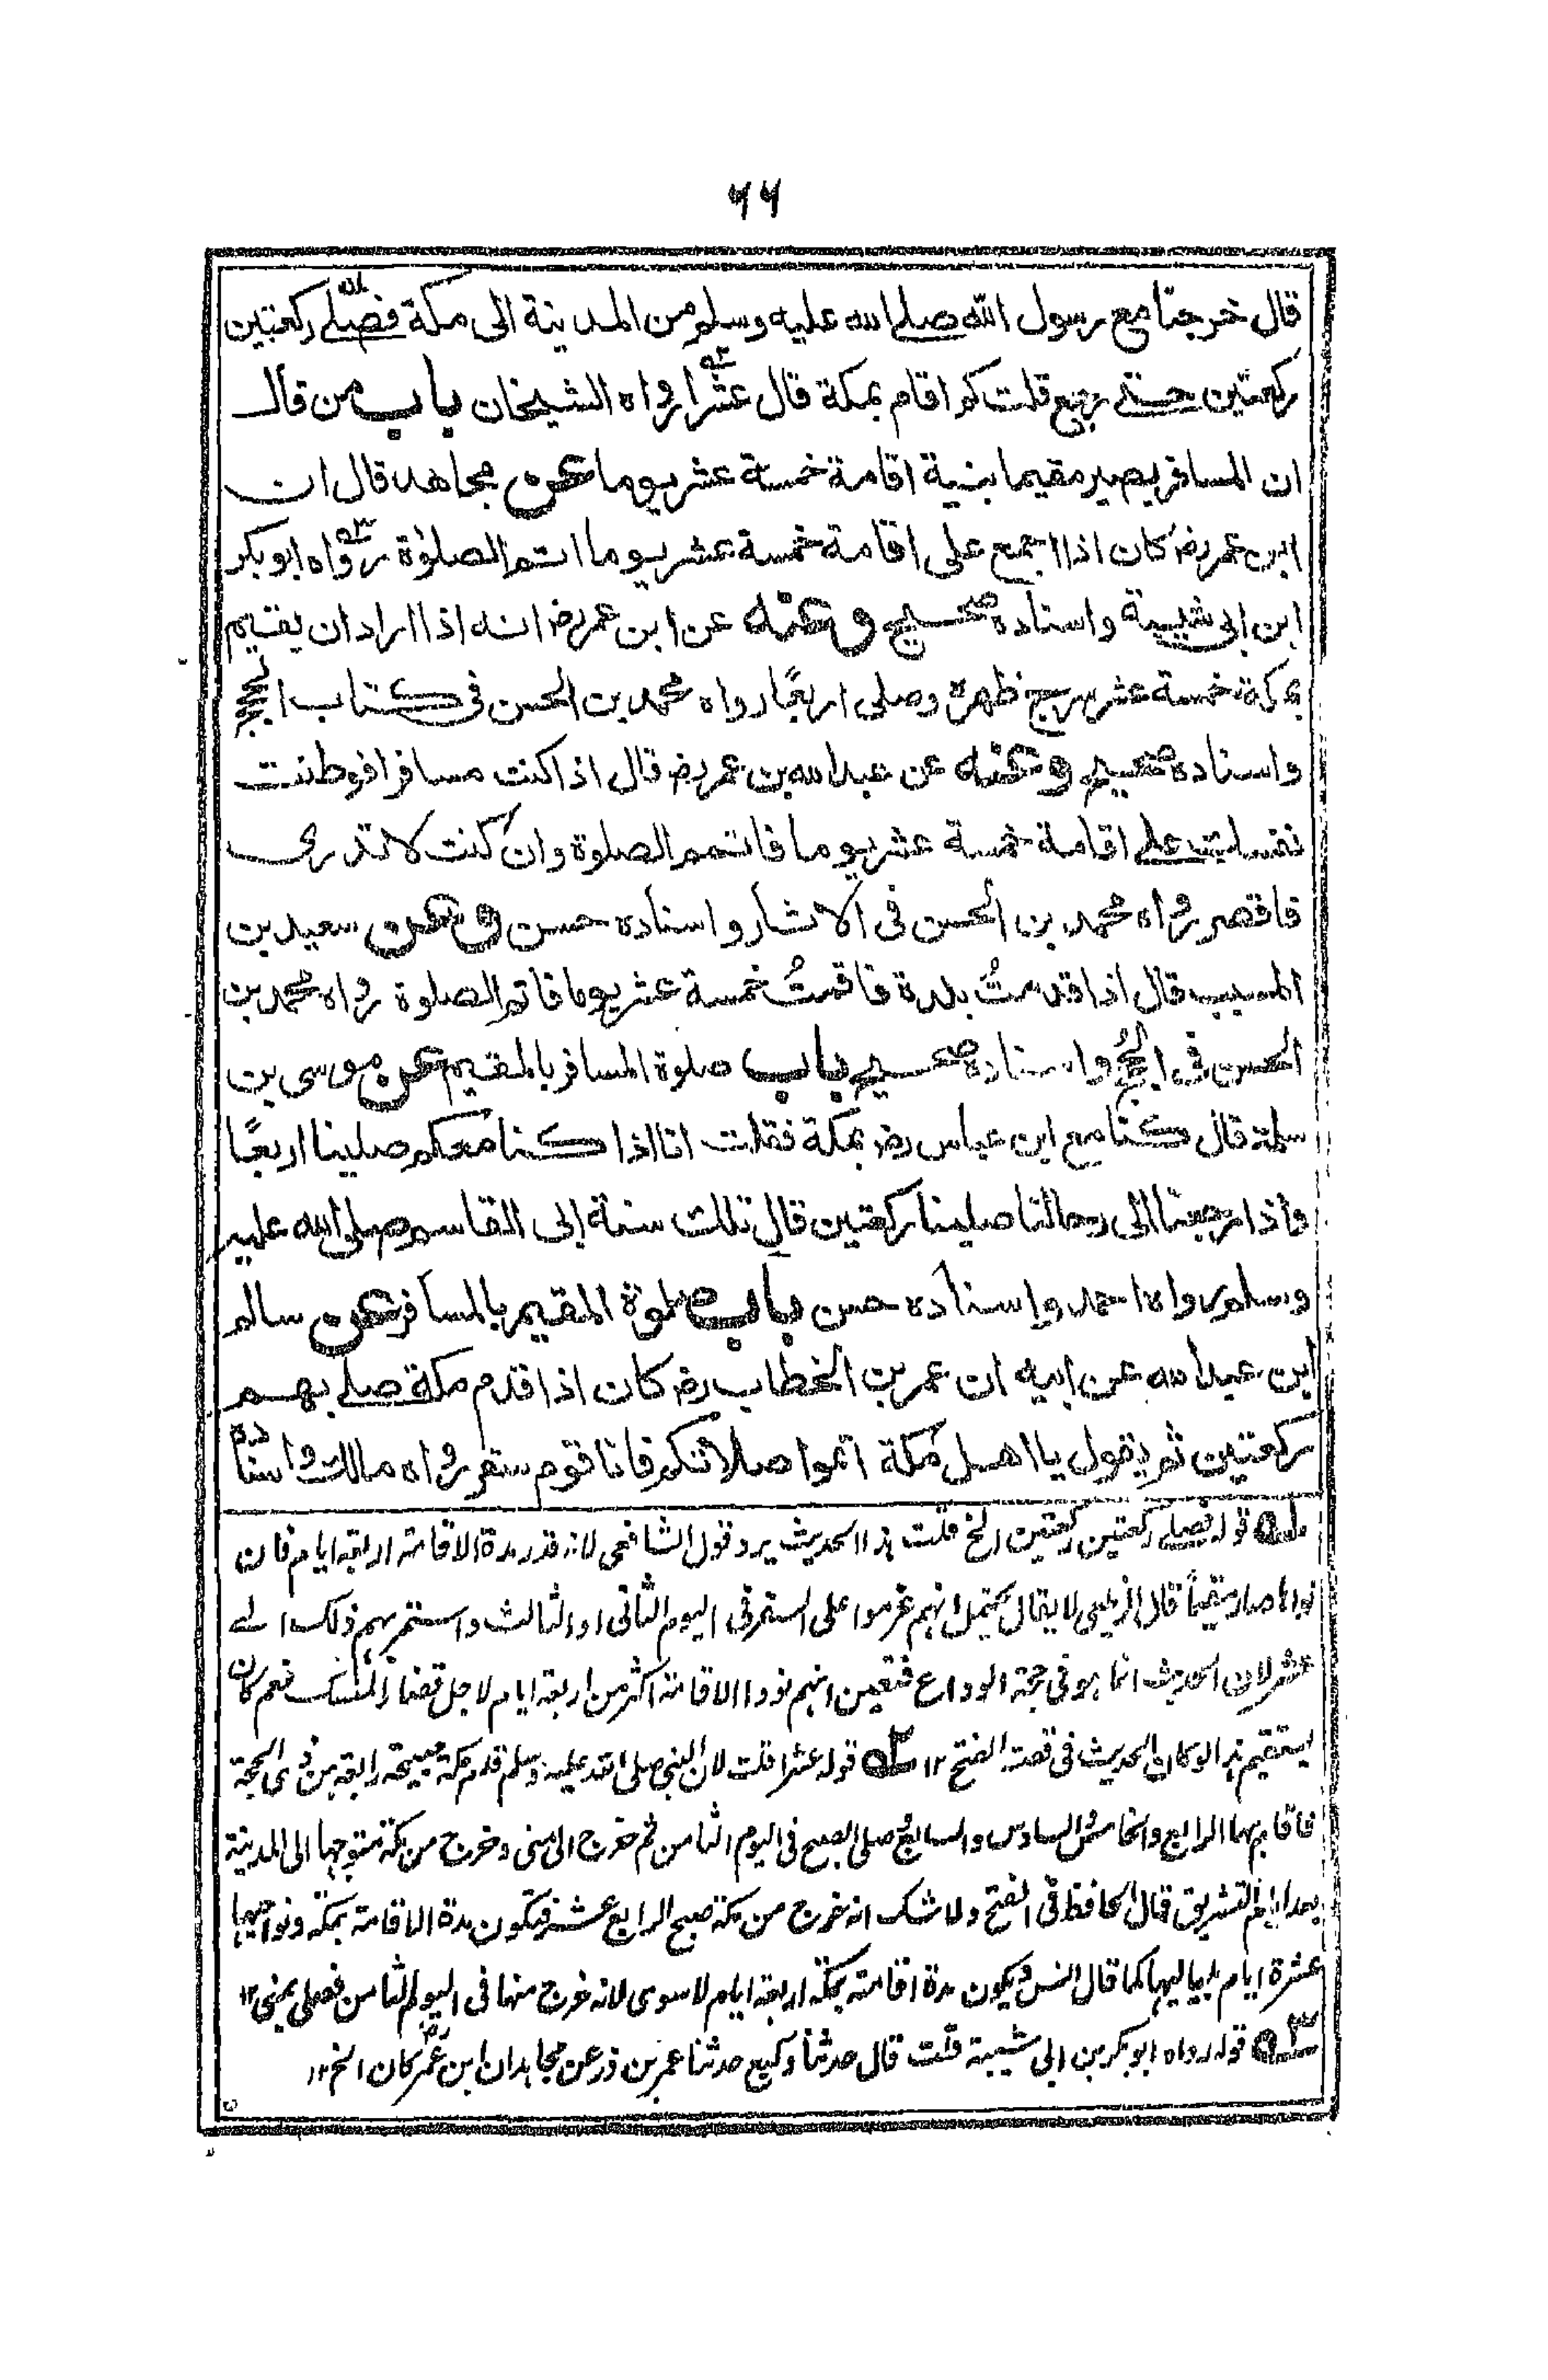 ٦٦
قال خرجنا مع رسول الله صلے الله عليه وسلم من المدينة الى مكة فصلے ركعتين
ركعتين حتے رجع قلت كم اقام بمكة قال عشرا رواه الشيخان باب من قال
ان المسافر يصير مقيما بنية اقامة خمسة عشر يوما عن مجاهد قال ان
ابن عمر رض كان اذا اجمع على اقامة خمسة عشر يوما اتم الصلوٰة رواه ابو بكر
ابن ابى شيبة واسناده صحيح وعنه عن ابن عمر رض انه اذا اراد ان يقيم
بمكة خمسة عشر سرج ظهره وصلى اربعًا رواه محمد بن الحسن فى كتاب الحجج
واسناده صحيح وعنه عن عبد الله بن عمر رض قال اذا كنت مسافرا فوطنت
نفسك علے اقامة خمسة عشر يوما فاتمم الصلوة وان كنت لا تدرى
فاقصر رواه محمد بن الحسن فى الاثار واسناده حسن وعن سعيد بن
المسيب قال اذا قدمتُ بلدة فاقمتُ خمسة عشر يوما فاتم الصلوة رواه محمد بن
الحسن فى الحجج واسناده صحيح باب صلوة المسافر بالمقيم عن موسى بن
سلمة قال كنا مع ابن عباس رض بمكة فقلت انا اذا كنا معكم صلينا اربعًا
واذا رجعنا الى رحالنا صلينا ركعتين قال تلك سنة ابى القاسم صلى الله عليه
وسلم رواه احمد واسناده حسن باب صلوة المقيم بالمسافر عن سالم
ابن عبد الله عن ابيه ان عمر بن الخطاب رض كان اذا قدم مكة صلے بهم
ركعتين ثم يقول يا اهل مكة اتموا صلاتكم فانا قوم سفر رواه مالك واسناده
١ه قوله فصلے ركعتين ركعتين الخ قلت هذا الحديث يرد قول الشافعى لانه قدر مدة الاقامة اربعة ايام فان
نواها صار مقيماً قال الزيلعى لا يقال يحتمل انهم عزموا على السفر فى اليوم الثانى او الثالث واستمر بهم ذلك الے
عشر لان الحديث انما هو فى حجة الوداع فتعين انهم نووا الاقامة اكثر من اربعة ايام لاجل قضاء النسك نعم كان
يستقيم هذا لو كان الحديث فى قصة الفتح ١٢ ٢ه قوله عشرا قلت لان النبى صلى الله عليه وسلم قدم مكة صبيحة رابعة من ذى الحجة
فاقام بها الرابع والخامس والسادس والسابع وصلى الصبح فى اليوم الثامن ثم خرج الى منى وخرج من مكة متوجها الى المدينة
بعد ايام التشريق قال الحافظ فى الفتح ولا شك انه خرج من مكة صبح الرابع عشر فتكون مدة الاقامة بمكة ونواحيها
عشرة ايام بلياليها كما قال انس ويكون مدة اقامته بمكة اربعة ايام لا سوى لانه خرج منها فى اليوم الثامن فصلى بمنى ١٢
٣ه قوله رواه ابو بكر بن ابى شيبة قلت قال حدثنا وكيع حدثنا عمر بن ذر عن مجاهد ان ابن عمر رض كان الخ ١٢